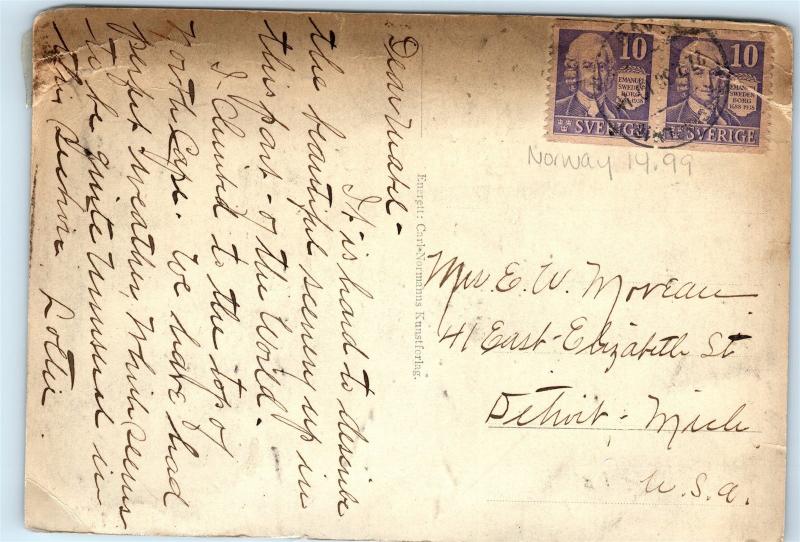 Dear Mabel -
It is hard to describe
the beautiful scenery up in
this part - of the World.
I Climbed to the top of
North Cape. We have had
perfect weather, which seems
to be quite Unusual in
this Section Lottie.
Eneret: Carl Normanns Kunstforlag.
10
EMANUEL
SWEDEN
BORG
1688 1938
SVERIGE
10
EMANUEL
SWEDEN
BORG
1688 1938
SVERIGE
Norway 14.99
Mrs E. W. Moreau
41 East-Elizabeth St
Detroit - Mich
U.S.A.